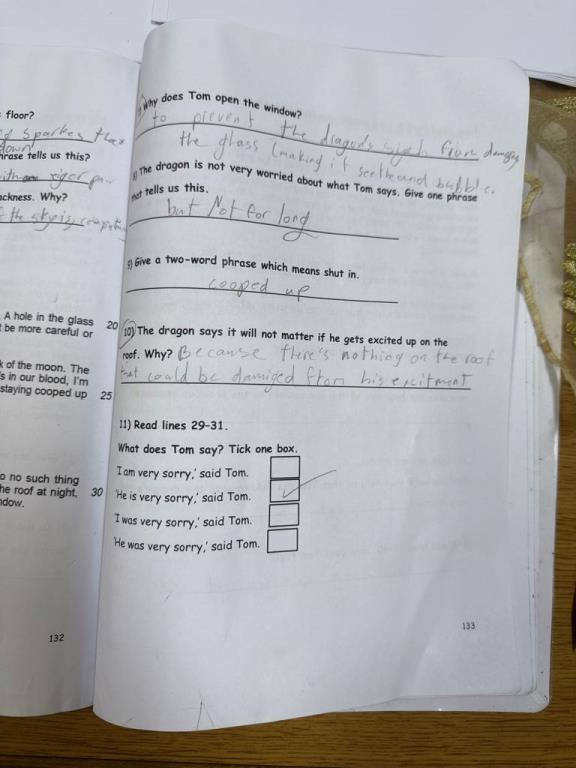 : floor?
sparkes
down
hrase tells us this?
ackness. Why?
the sky is
A hole in the glass 20
t be more careful or
k of the moon. The
s in our blood, I'm
staying cooped up 25
o no such thing
he roof at night, 30
ndow.
132
Why does Tom open the window?
to prevent the dragon's from
the glass (making it and bubble.
The dragon is not very worried about what Tom says. Give one phrase
that tells us this.
but Not for long
9) Give a two-word phrase which means shut in.
cooped up
10) The dragon says it will not matter if he gets excited up on the
roof. Why? Because there's nothing on the roof
that could be damiged from his exitment
11) Read lines 29-31.
What does Tom say? Tick one box.
'I am very sorry,' said Tom.
'He is very sorry,' said Tom.
'I was very sorry,' said Tom.
'He was very sorry,' said Tom.
133